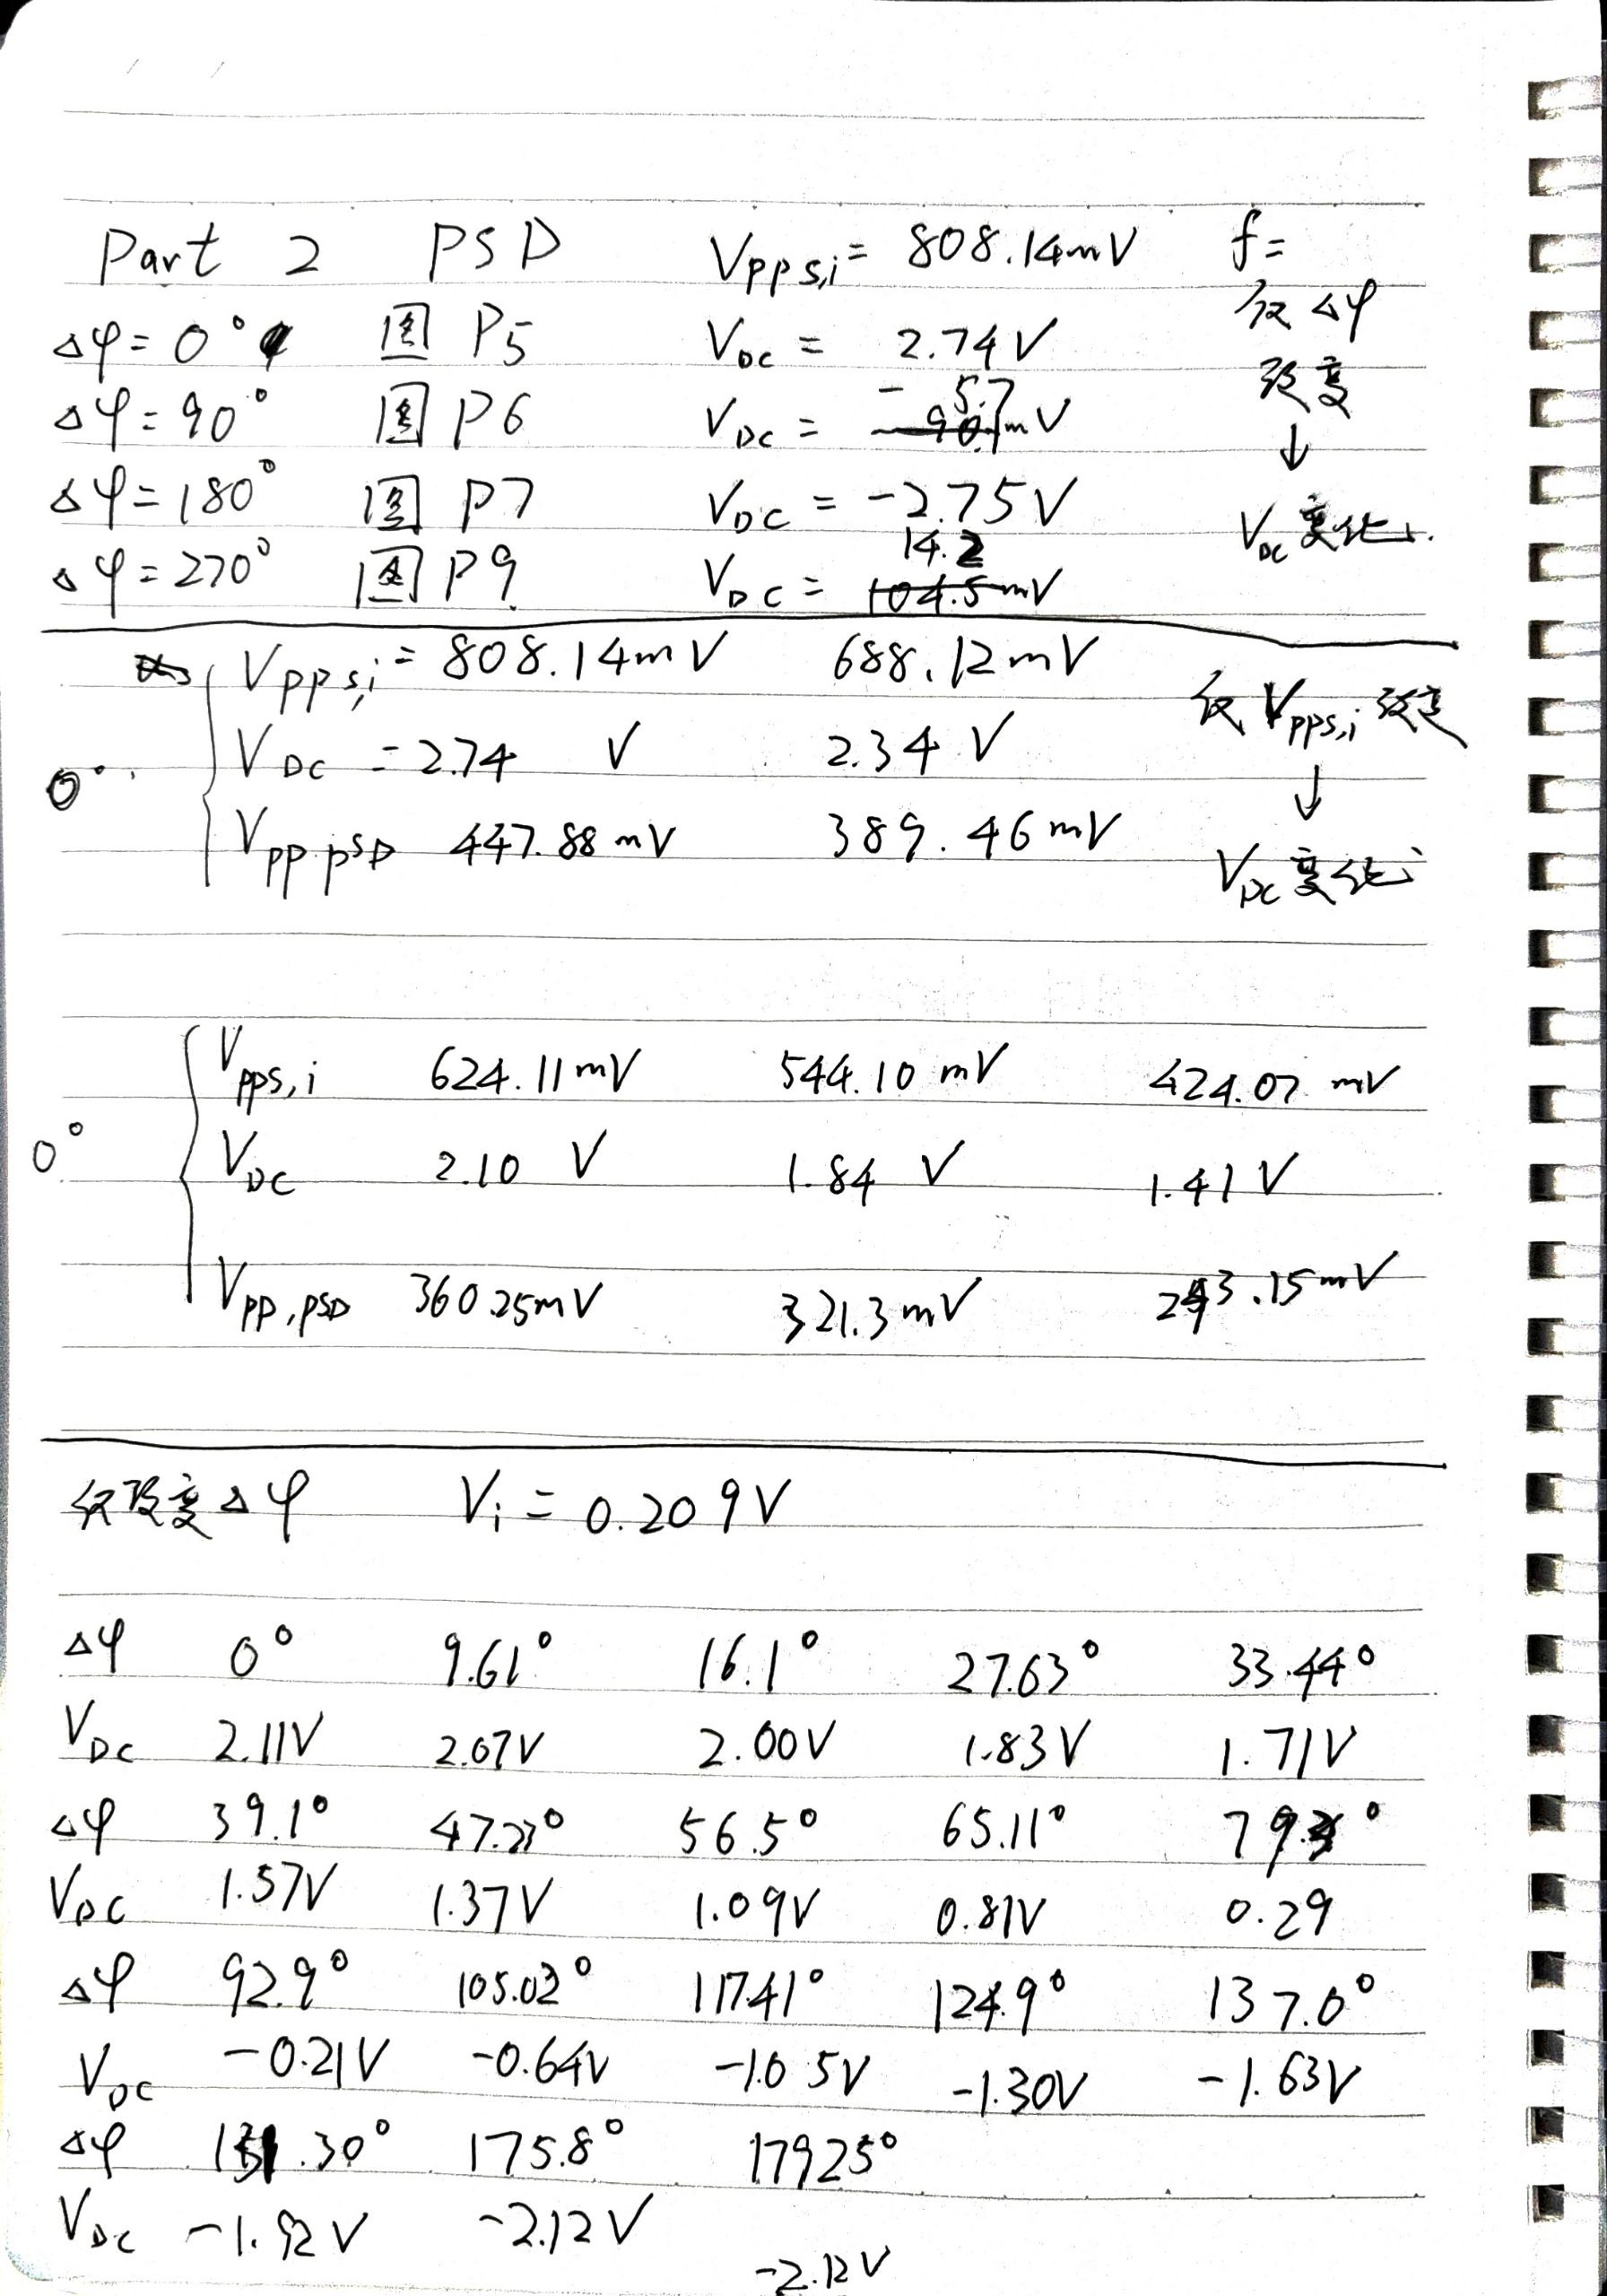 Part 2 PSD Vpps,i = 808.14mV f=
Δφ=0° 图 P5 VDC = 2.74V 仅Δφ
Δφ=90° 图 P6 VDC = -5.7mV 改变
↓
Δφ=180° 图 P7 VDC = -2.75V VDC变化
Δφ=270° 图 P9 VDC = 14.2mV
Vpps,i = 808.14mV 688.12mV 仅Vpps,i改变
0° VDC = 2.74 V 2.34 V ↓
Vpp.PSD 447.88mV 389.46mV VDC变化
Vpps,i 624.11mV 544.10mV 424.07mV
0° VDC 2.10 V 1.84 V 1.41V
Vpp,PSD 360.25mV 321.3mV 243.15mV
仅改变Δφ Vi = 0.209V
Δφ 0° 9.61° 16.1° 27.63° 33.44°
VDC 2.11V 2.07V 2.00V 1.83V 1.71V
Δφ 39.1° 56.5° 65.11°
VDC 1.57V 1.37V 1.09V 0.81V 0.29
Δφ 92.9° 105.02° 117.41° 124.9° 137.0°
VDC -0.21V -0.64V -1.05V -1.30V -1.63V
Δφ 175.8° 179.25°
VDC -1.92V -2.12V -2.12V